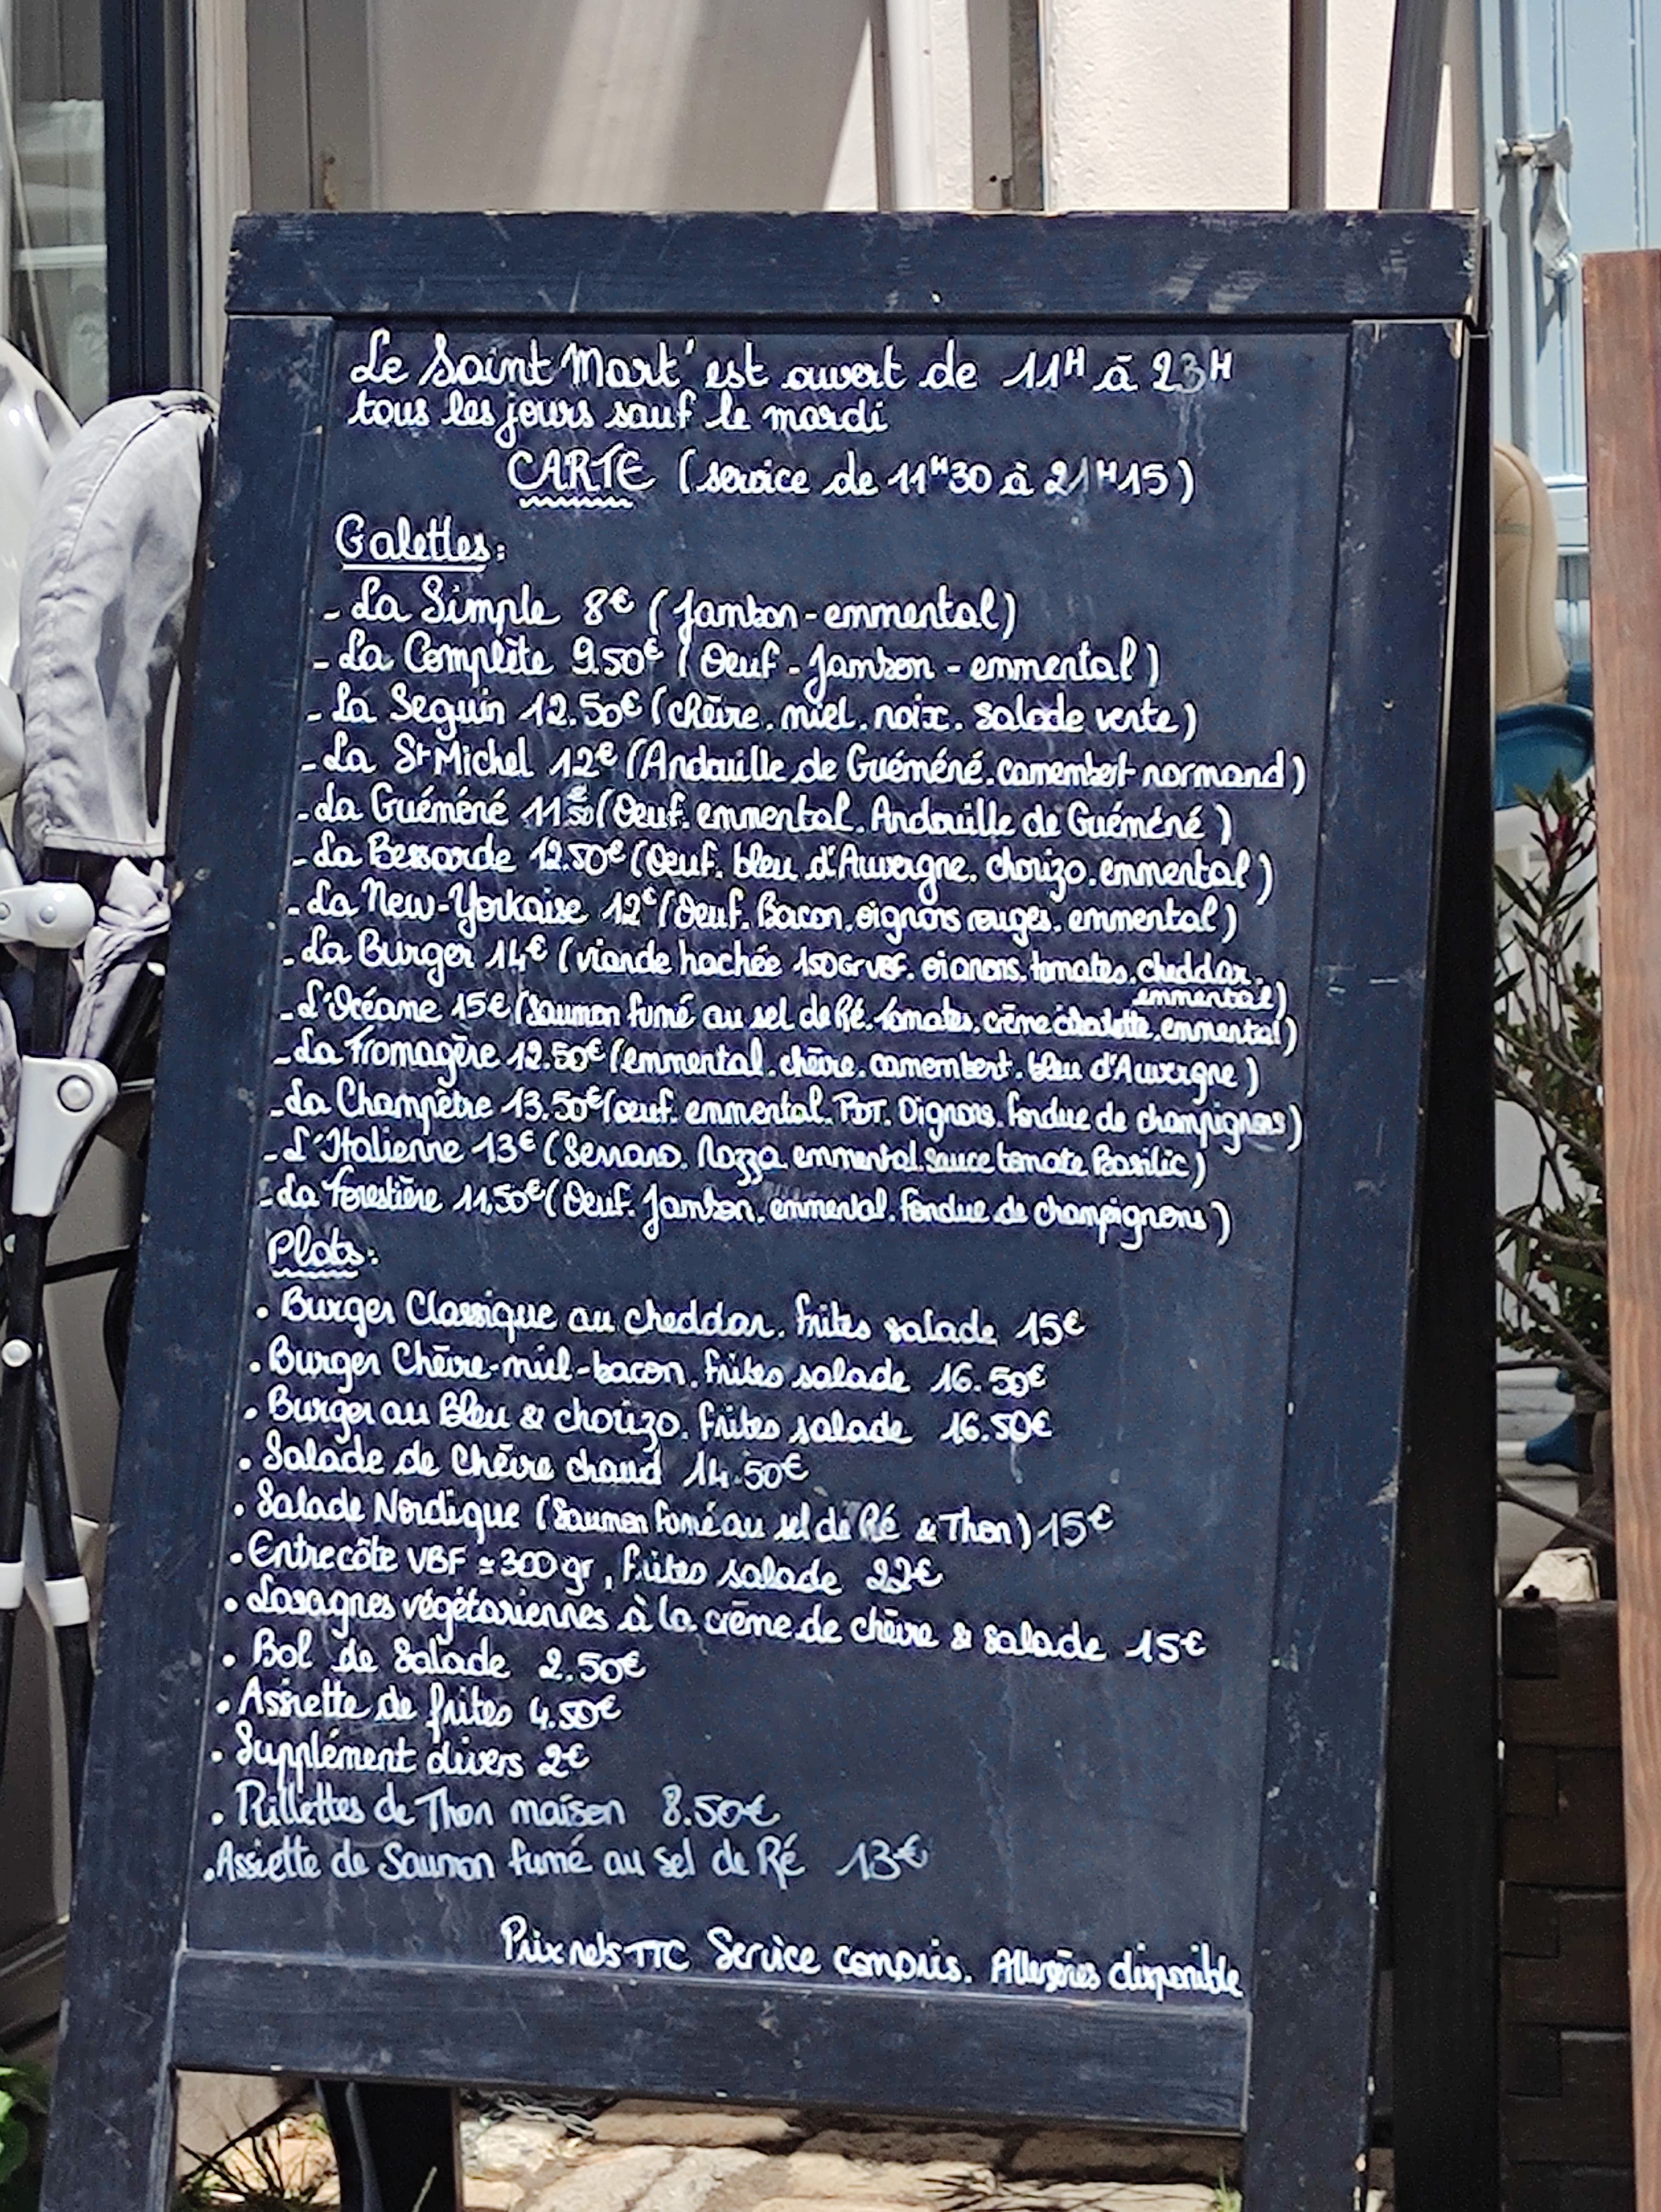 Le Saint Mart' est ouvert de 11H à 23H
tous les jours sauf le mardi
CARTE (service de 11H30 à 21H15)
Galettes:
- La Simple 8€ (Jambon - emmental)
- La Complète 9.50€ (Oeuf - Jambon - emmental)
- La Seguin 12.50€ (chèvre. miel. noix. salade verte)
- La St Michel 12€ (Andouille de Guéméné. camembert normand)
- La Guéméné 11€50 (Oeuf. emmental. Andouille de Guéméné)
- La Bessarde 12.50€ (Oeuf. bleu d'Auvergne. chorizo. emmental)
- La New-Yorkaise 12€ (Oeuf. Bacon. oignons rouges. emmental)
- La Burger 14€ (viande hachée 150Gr VBF. oignons. tomates. cheddar.
emmental)
- L'Océane 15€ (Saumon fumé au sel de Ré. tomates. crème échalotte. emmental)
- La Fromagère 12.50€ (emmental. chèvre. camembert. bleu d'Auvergne)
- La Champêtre 13.50€ (oeuf. emmental. PDT. Oignons. fondue de champignons)
- L'Italienne 13€ (Serrano. Mozza. emmental. sauce tomate. Basilic)
- La Forestière 11,50€ (Oeuf. Jambon. emmental. fondue de champignons)
Plats:
• Burger Classique au cheddar. frites salade 15€
• Burger Chèvre-miel-bacon. frites salade 16.50€
• Burger au Bleu & chorizo. frites salade 16.50€
• Salade de Chèvre chaud 14.50€
• Salade Nordique (Saumon fumé au sel de Ré & Thon) 15€
• Entrecôte VBF ≃ 300 gr, frites salade 22€
• Lasagnes végétariennes à la crème de chèvre & salade 15€
• Bol de Salade 2.50€
• Assiette de frites 4.50€
• Supplément divers 2€
• Rillettes de Thon maison 8.50€
• Assiette de Saumon fumé au sel de Ré 13€
Prix nets TTC Service compris. Allergènes disponible